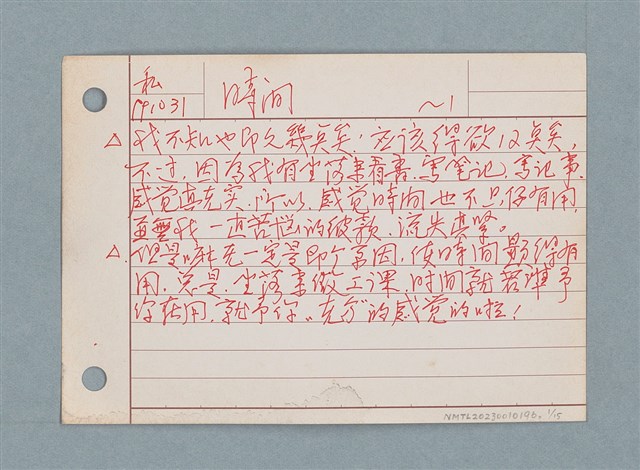 私
791031
時间
~1
△ 我不知也即久幾点矣,应该得欲12点矣,
不过,因為我有坐落来看書、写笔记、寫记事,
感觉真充实,所以,感觉時间也不只仔有用,
直到我一直苦惱的彼款,流失真緊。
△ 但是嘛无一定是即个原因,使時间顯得有
用,总是,坐落来做工课,时间就若準予
你在用,就予你"充分"的感觉的啦!
NMTL20230010196, 1/15